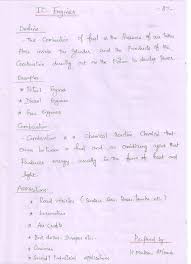 IC Engines
Define:
- The Combustion of fuel in the Presence of air takes
Place inside the Cylinder and the Products of the
Combustion directly act on the Piston to develop Power.
Examples:
* Petrol Engines
* Diesel Engines
* Gas Engines
Combustion:
Combustion is a Chemical Reaction Chemical that
Occurs between a fuel and an oxidizing agent that
Produces energy, usually in the form of heat and
light.
Applications:
* Road vehicles
* Locomotive
* Air Crafts
*
*
* Several Industrial applications
Prepared by